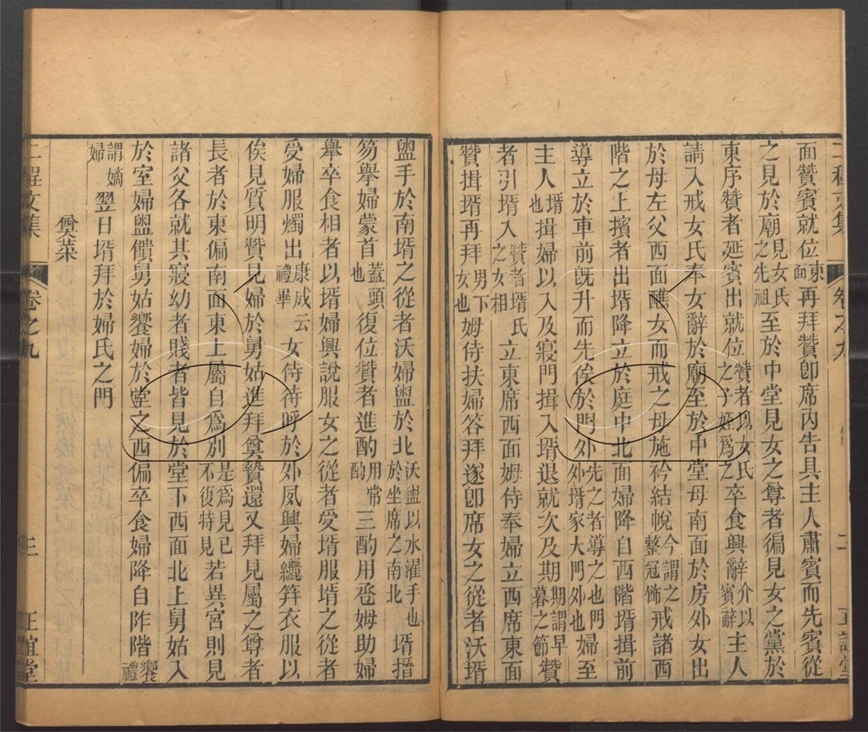 面贊賓就位東面再拜贊卽席內告具主人肅賓而先賓從
之見於廟見女氏之先祖至於中堂見女之尊者徧見女之黨於
東序贊者延賓出就位贊者以女氏之子姪爲之卒食興辭介以賓辭主人
請入戒女氏奉女辭於廟至於中堂母南面於房外女出
於母左父西面醮女而戒之母施衿結帨今謂之整冠飾戒諸西
階之上擯者出壻降立於庭中北面婦降自西階壻揖前
導立於車前旣升而先俟於門外先之者導之也門外壻家大門外也婦至
主人壻也揖婦以入及寢門揖入壻退就次及期期謂早暮之節贊
者引壻入贊者壻氏之女相立東席西面姆侍奉婦立西席東面
贊揖壻再拜男下女也姆侍扶婦答拜遂卽席女之從者沃壻
二程文集
卷之九
二
正誼堂
盥手於南壻之從者沃婦盥於北沃盥以水濯手也於坐席之南北壻搢
笏舉婦蒙首蓋頭也復位贊者進酌用常酌三酌用卺姆助婦
舉卒食相者以壻婦興說服女之從者受壻服壻之從者
受婦服燭出康成云禮畢女侍待呼於外夙興婦纚笄衣服以
俟見質明贊見婦於舅姑進拜奠贄還又拜見屬之尊者
長者於東偏南面東上屬自爲別是爲見已不復特見若異宮則見
諸父各就其寢幼者賤者皆見於堂下西面北上舅姑入
於室婦盥饋舅姑饗婦於堂之西偏卒食婦降自阼階饗禮
謂嫡婦翌日壻拜於婦氏之門
奠菜
二程文集
卷之九
三
正誼堂